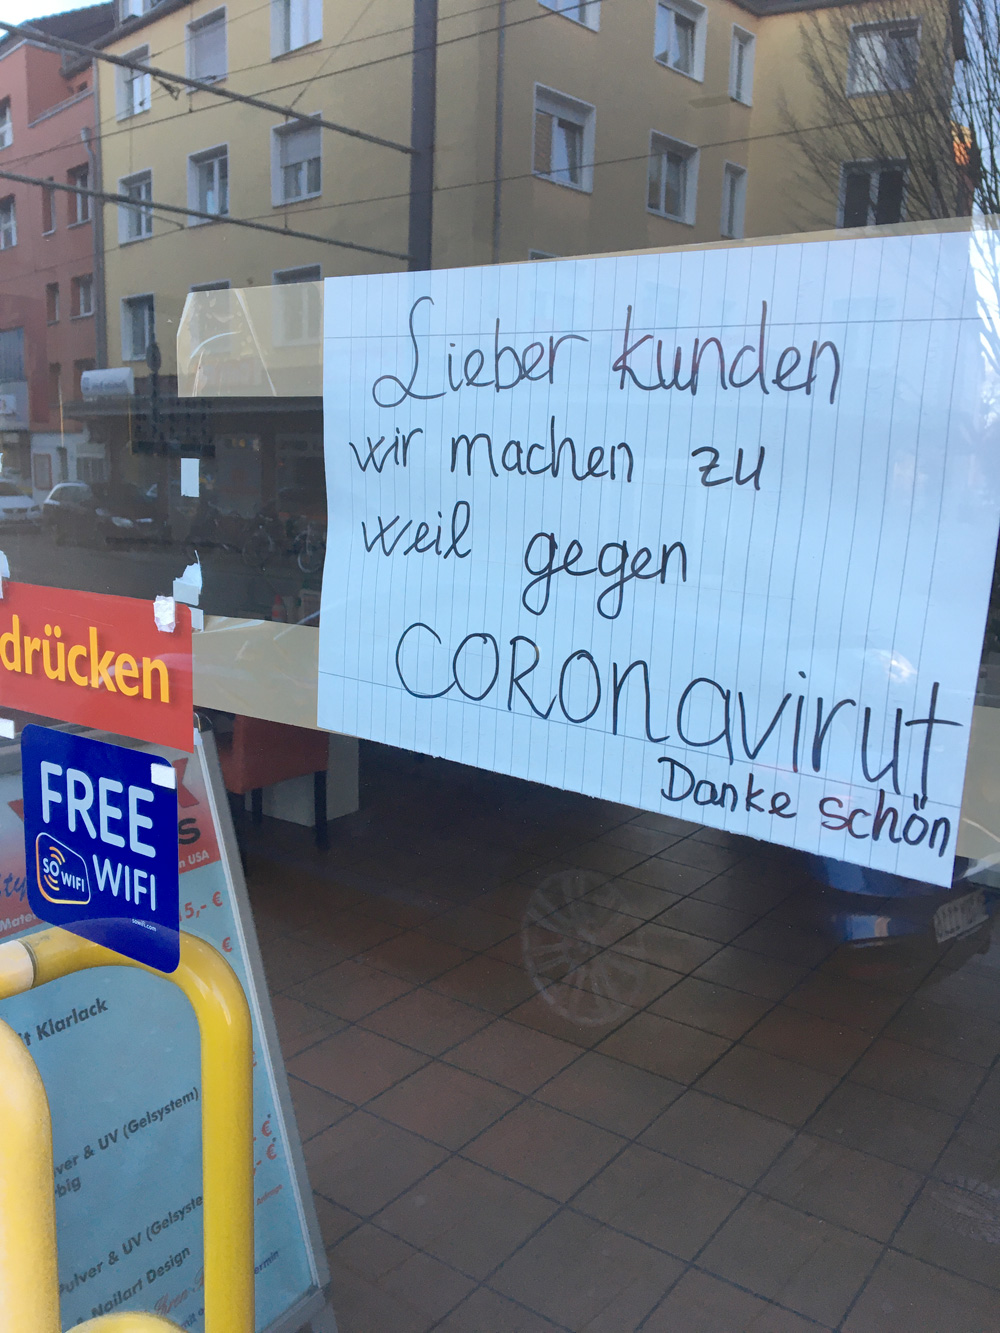 Lieber kunden
wir machen zu
weil gegen
CORONavirut
Danke schön
drücken
FREE
SO WIFI
WIFI
sowifi.com
s
n USA
5,- €
€
Mate
t Klarlack
ver & UV (Gelsystem)
big
Pulver & UV (Gelsyste
& Nailart Design